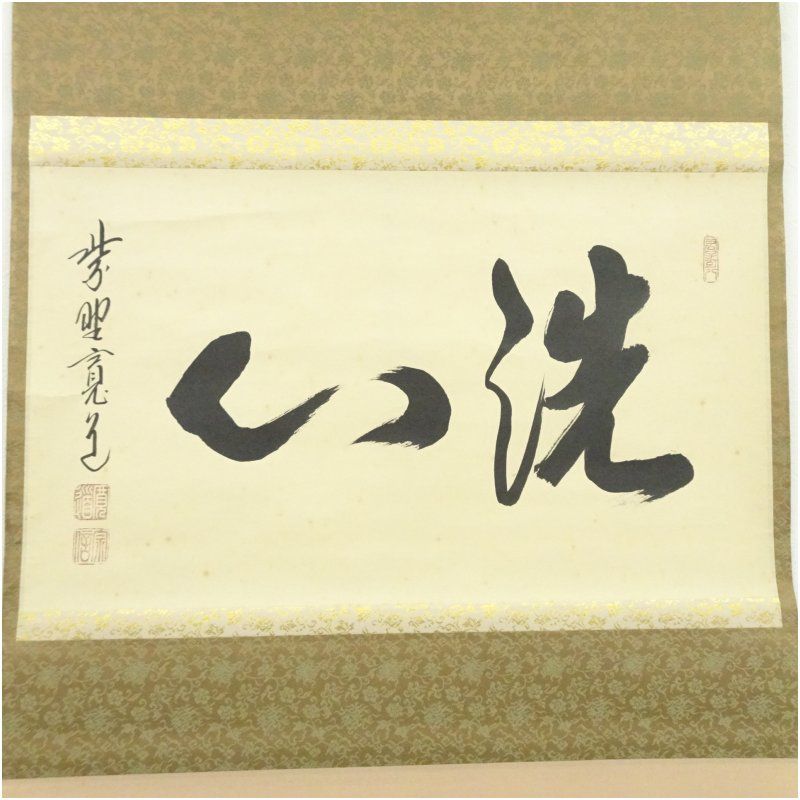 洗心
紫野寛道